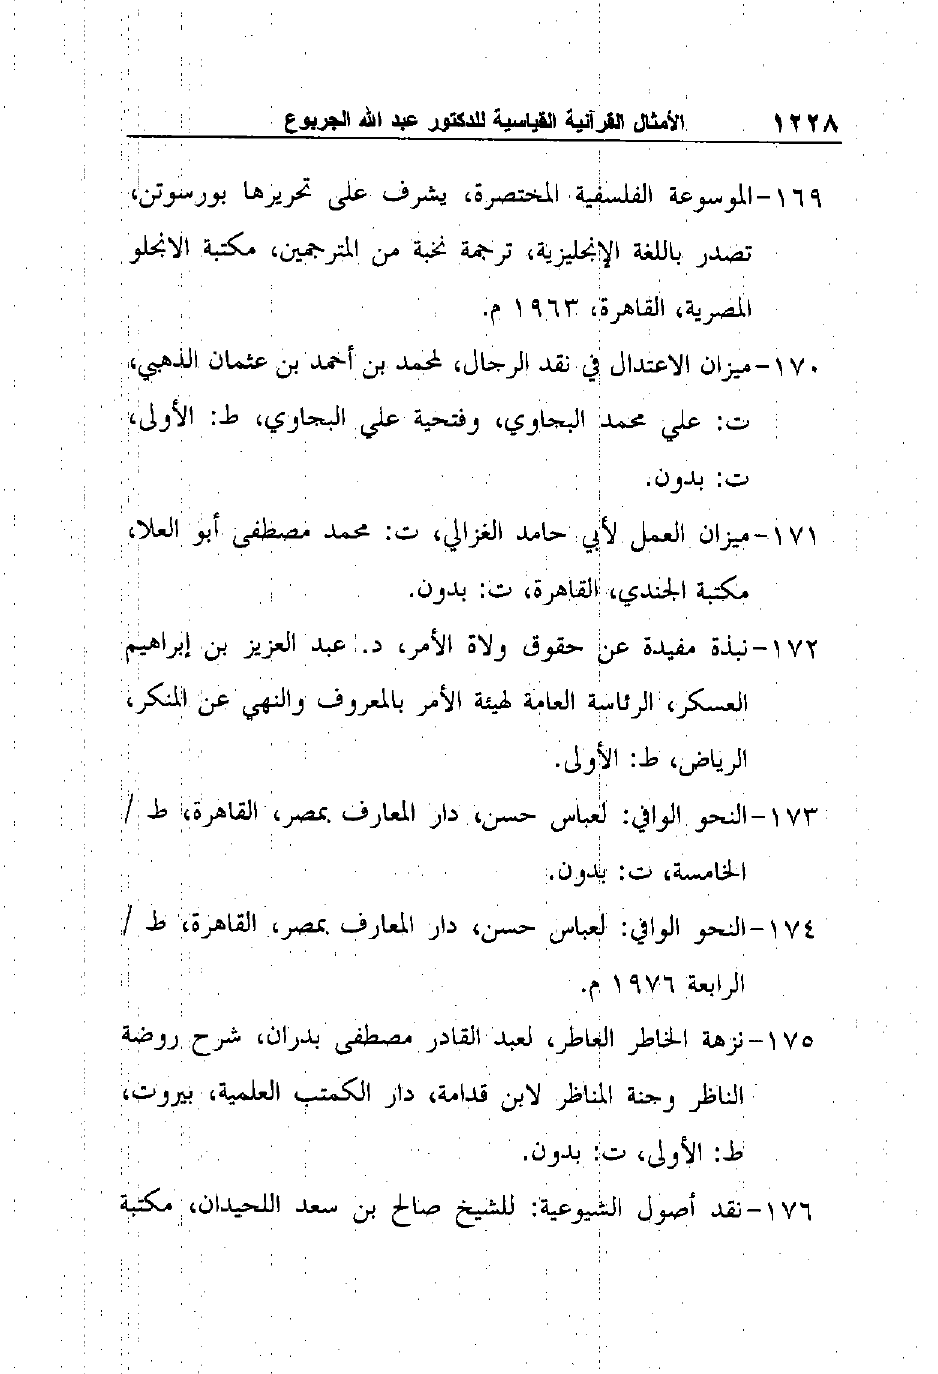 ١٢٢٨ الأمثال القرآنية القياسية للدكتور عبد الله الجربوع
١٦٩-الموسوعة الفلسفية المختصرة، يشرف على تحريرها بورسوتن،
تصدر باللغة الإنجليزية، ترجمة نخبة من المترجمين، مكتبة الانجلو
المصرية، القاهرة، ١٩٦٣ م.
١٧٠-ميزان الاعتدال في نقد الرجال، لمحمد بن أحمد بن عثمان الذهبي،
ت: علي محمد البجاوي، وفتحية علي البجاوي، ط: الأولى،
ت: بدون.
١٧١-ميزان العمل لأبي حامد الغزالي، ت: محمد مصطفى أبو العلا،
مكتبة الجندي، القاهرة، ت: بدون.
١٧٢-نبذة مفيدة عن حقوق ولاة الأمر، د. عبد العزيز بن إبراهيم
العسكر، الرئاسة العامة لهيئة الأمر بالمعروف والنهي عن المنكر،
الرياض، ط: الأولى.
١٧٣-النحو الوافي: لعباس حسن، دار المعارف بمصر، القاهرة، ط /
الخامسة، ت: بدون.
١٧٤-النحو الوافي: لعباس حسن، دار المعارف بمصر، القاهرة، ط /
الرابعة ١٩٧٦ م.
١٧٥-نزهة الخاطر العاطر، لعبد القادر مصطفى بدران، شرح روضة
الناظر وجنة المناظر لابن قدامة، دار الكمتب العلمية، بيروت،
ط: الأولى، ت: بدون.
١٧٦-نقد أصول الشيوعية: للشيخ صالح بن سعد اللحيدان، مكتبة